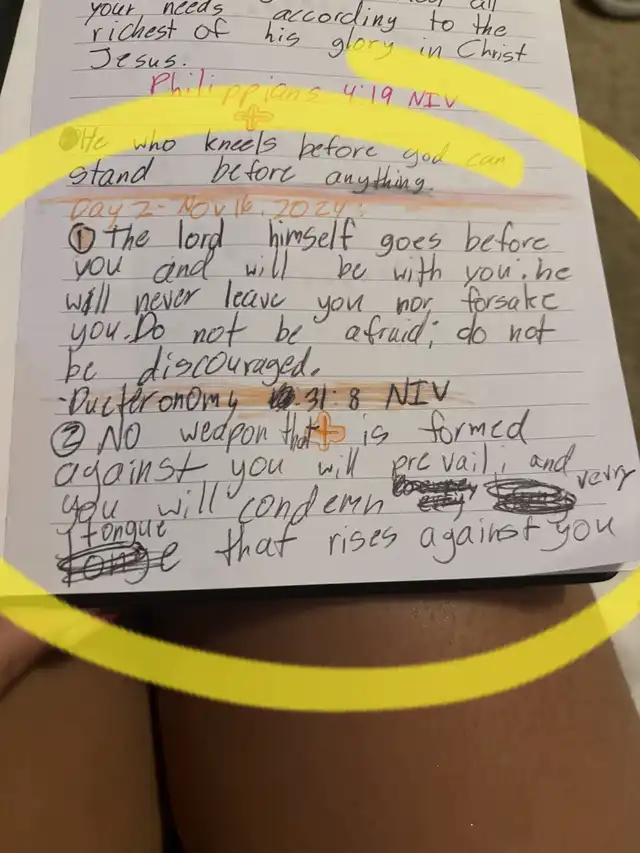 your needs according to the
richest of his glory in Christ
Jesus.
Philippians 4:19 NIV
He who kneels before god can
stand before anything.
Day 2- Nov 16, 2024:
① The lord himself goes before
you and will be with you; he
will never leave you nor forsake
you. Do not be afraid; do not
be discouraged.
-Ducteronomy 31:8 NIV
② NO weapon that is formed
against you will prevail; and
you will condemn verry
tongue
that rises against you